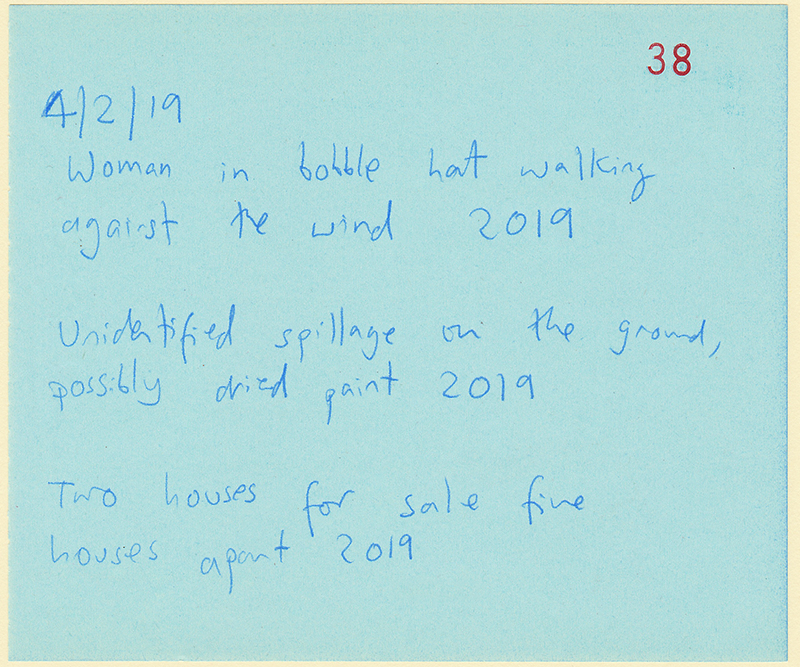 38
4/2/19
Woman in bobble hat walking
against the wind 2019
Unidentified spillage on the ground,
possibly dried paint 2019
Two houses for sale five
houses apart 2019